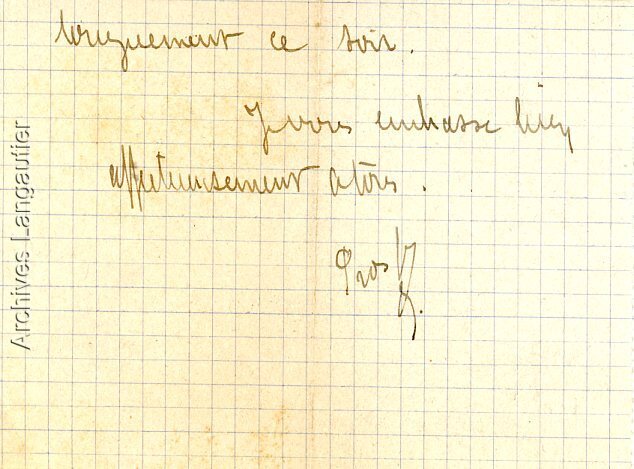 longuement ce soir.
Je vous embrasse bien
affectueusement a tous.
Archives Langautier